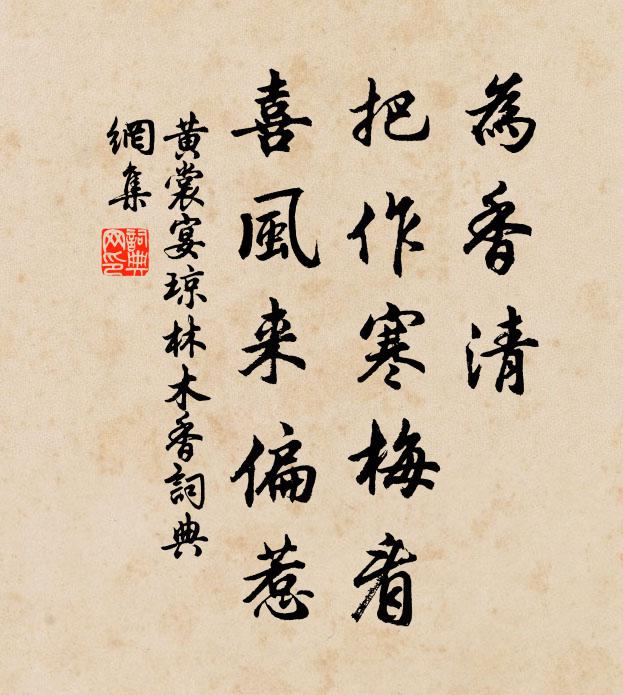 為香清
把作寒梅看
喜風来偏惹
黄裳宴琼林木香詞典
網集
詞典
网印